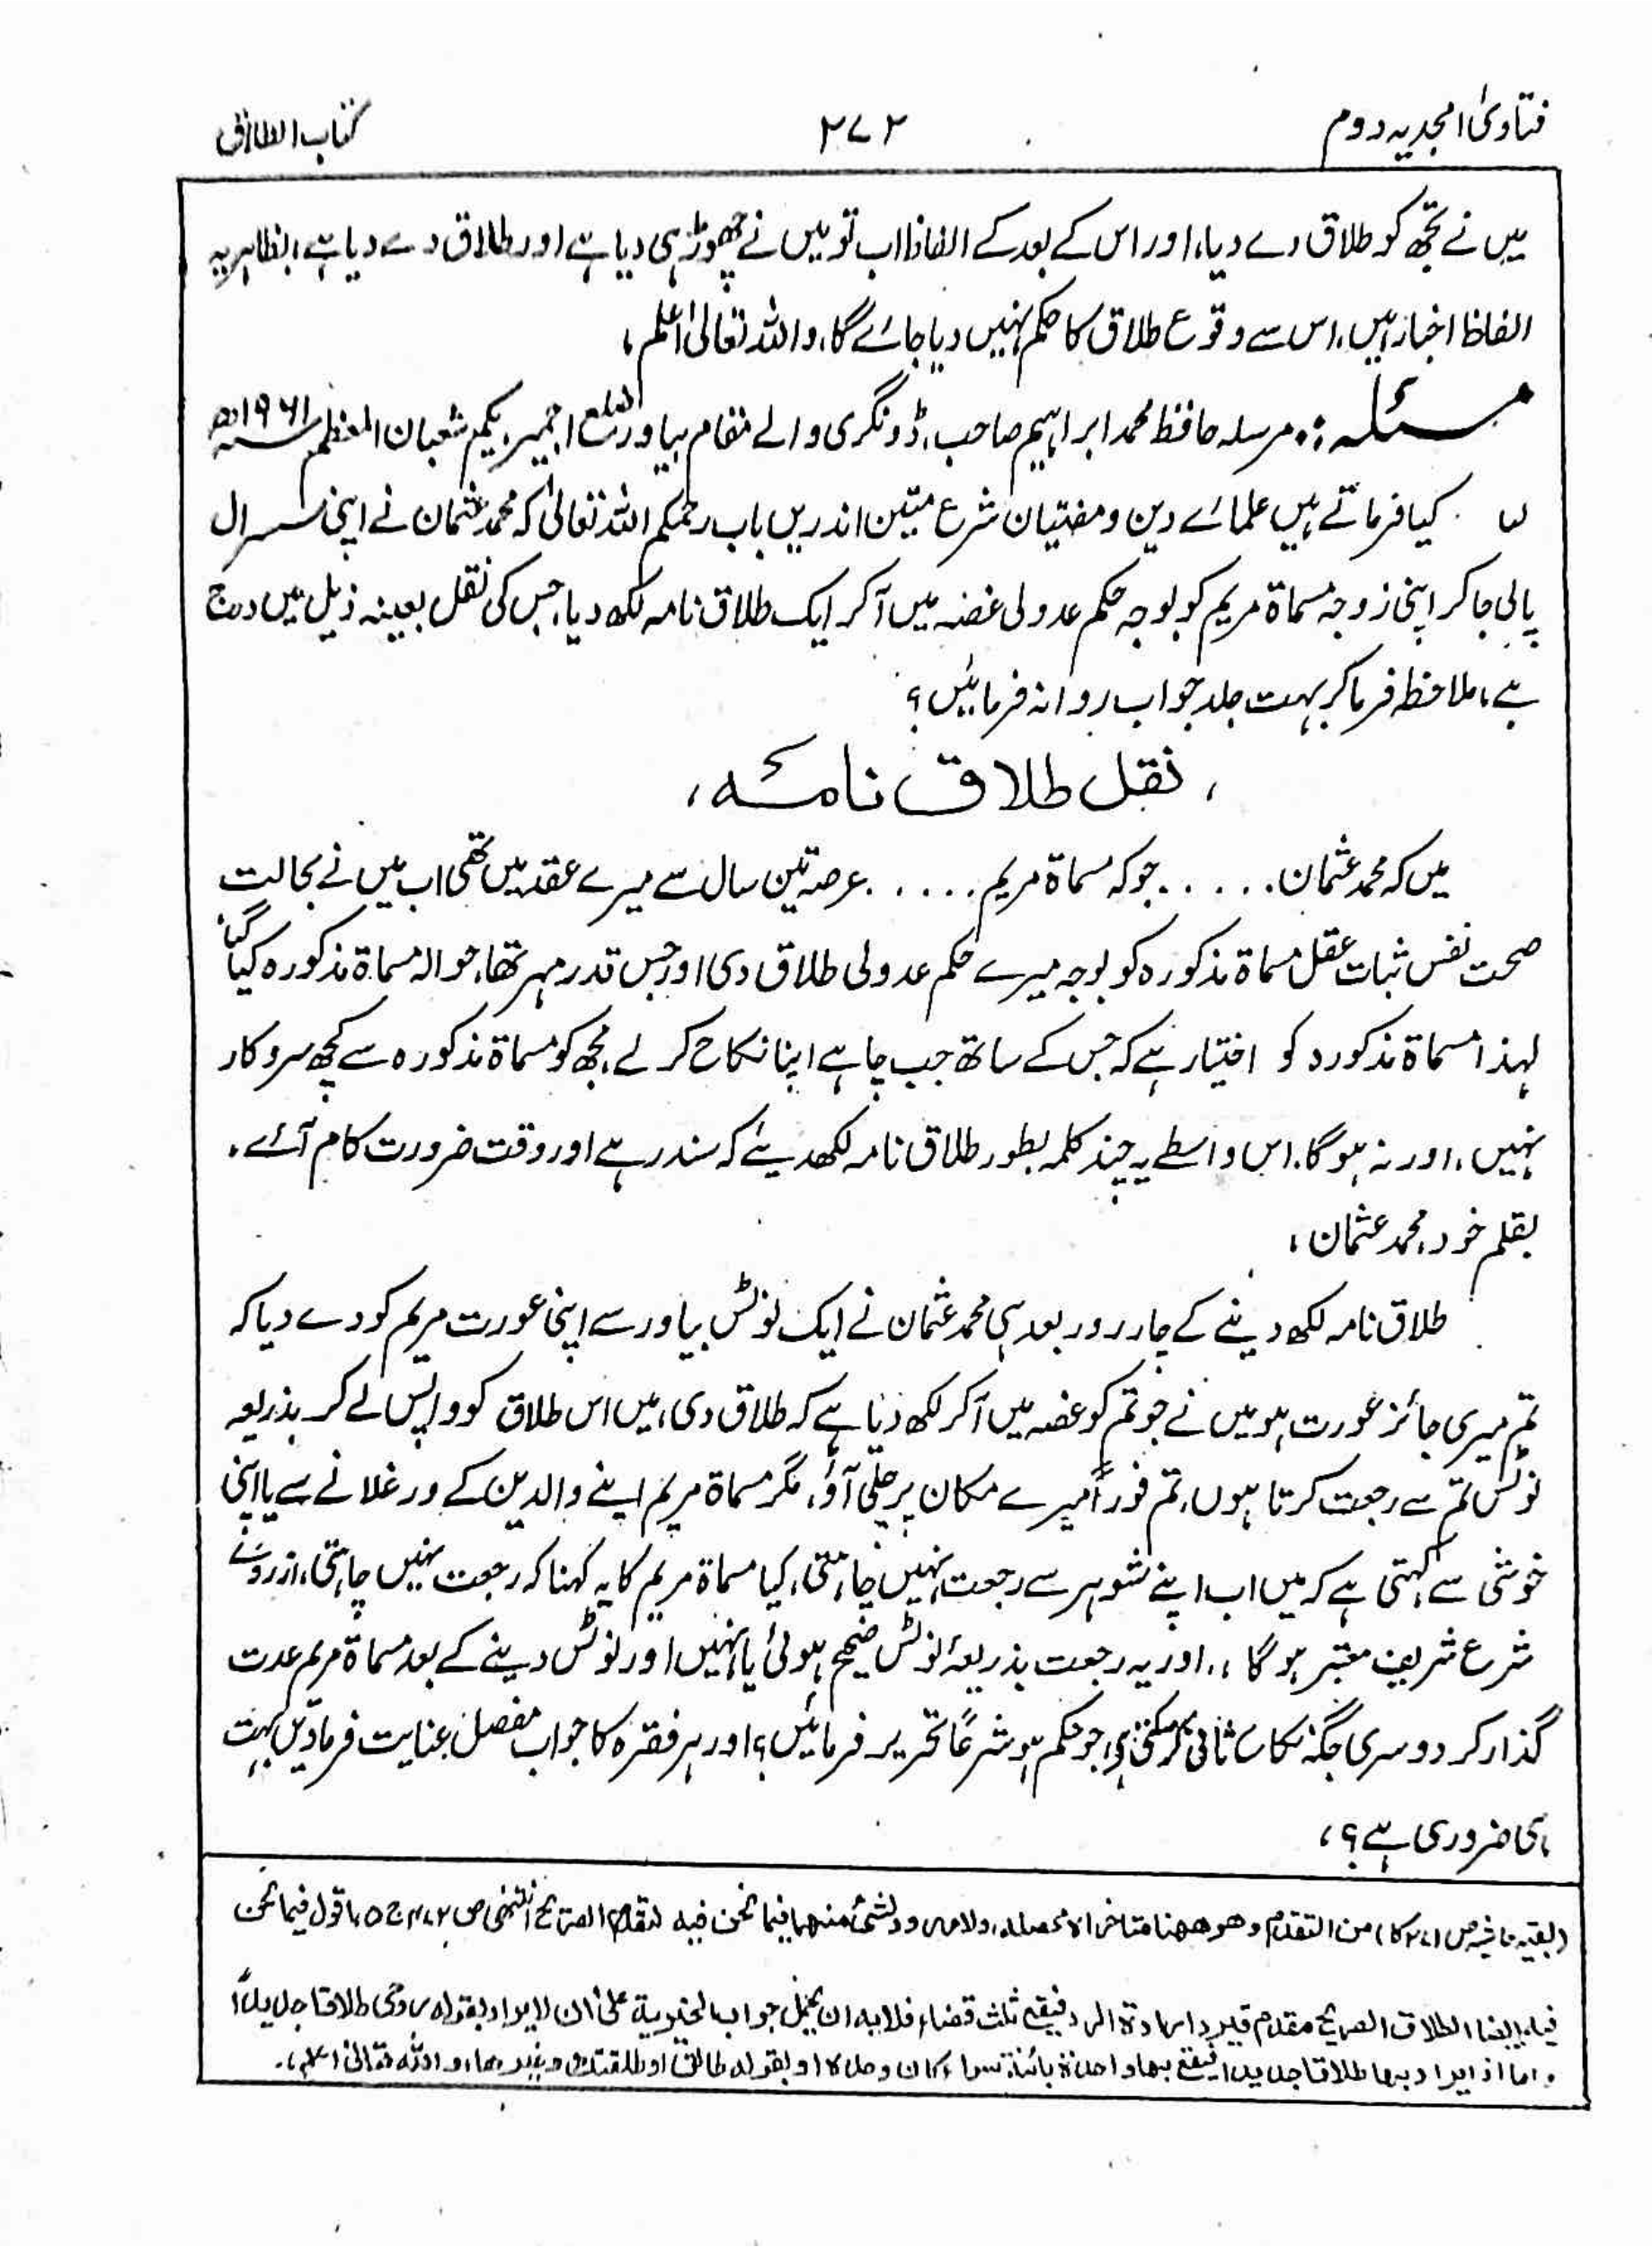 فتاویٰ امجدیہ دوم
۲۷۲
کتاب الطلاق
میں نے تجھ کو طلاق دے دیا، اور اس کے بعد کے الفاظ اب تو میں نے چھوڑ ہی دیا ہے اور طلاق دے دیا ہے، بظاہر یہ
الفاظ اخبار ہیں، اس سے وقوع طلاق کا حکم نہیں دیا جائے گا، واللہ تعالیٰ اعلم،
مسئلہ:۔ مرسلہ حافظ محمد ابراہیم صاحب، ڈونگری والے مقام بیاور ضلع اجمیر یکم شعبان المعظم
کیا فرماتے ہیں علمائے دین و مفتیان شرع متین اندریں باب رحمکم اللہ تعالیٰ کہ محمد عثمان نے اپنی سسرال
پالی جا کر اپنی زوجہ مسماۃ مریم کو بوجہ حکم عدولی غصہ میں آ کر ایک طلاق نامہ لکھ دیا، جس کی نقل بعینہ ذیل میں درج
ہے، ملاحظہ فرما کر بہت جلد جواب روانہ فرمائیں؟
، نقل طلاق نامہ ،
میں کہ محمد عثمان..... جو کہ مسماۃ مریم..... عرصہ تین سال سے میرے عقد میں تھی اب میں نے بحالت
صحت نفس ثبات عقل مسماۃ مذکورہ کو بوجہ میرے حکم عدولی طلاق دی اور جس قدر مہر تھا، حوالہ مسماۃ مذکورہ کیا گیا،
لہذا مسماۃ مذکورہ کو اختیار ہے کہ جس کے ساتھ جب چاہے اپنا نکاح کر لے، مجھ کو مسماۃ مذکورہ سے کچھ سروکار
نہیں، اور نہ ہوگا، اس واسطے یہ چند کلمہ بطور طلاق نامہ لکھدیئے کہ سند رہے اور وقت ضرورت کام آئے۔
بقلم خود، محمد عثمان،
طلاق نامہ لکھ دینے کے چار روز بعد ہی محمد عثمان نے ایک نوٹس بیاور سے اپنی عورت مریم کو دے دیا کہ
تم میری جائز عورت ہو میں نے جو تم کو غصہ میں آکر لکھ دیا ہے کہ طلاق دی، میں اس طلاق کو واپس لے کر بذریعہ
نوٹس تم سے رجعت کرتا ہوں، تم فوراً میرے مکان پر چلی آؤ، مگر مسماۃ مریم اپنے والدین کے ورغلانے سے یا اپنی
خوشی سے کہتی ہے کہ میں اب اپنے شوہر سے رجعت نہیں چاہتی، کیا مسماۃ مریم کا یہ کہنا کہ رجعت نہیں چاہتی، ازروئے
شرع شریف معتبر ہوگا ،، اور یہ رجعت بذریعۂ نوٹس صحیح ہوئی یا نہیں اور نوٹس دینے کے بعد مسماۃ مریم عدت
گذار کر دوسری جگہ نکاح ثانی کر سکتی ہے، جو حکم ہو شرعاً تحریر فرمائیں؟ اور ہر فقرہ کا جواب مفصل عنایت فرمادیں بہت
ہی ضروری ہے؟،
(بقیہ حاشیہ ص ۲۷۱ کا) من التقدم وهو ههنا متاخر الا محصله، ولا مردود لشئ منهما فيما نحن فيه لتقدم الصريح انتهى اقول فيما نحن
فيه ايضا الطلاق الصريح مقدم ثلث قضاء فلابد ان على ان لا يراد بقوله طلاقا جديدا
واما اذا يراد بها طلاقا جديدا فيقع بها واحدة بائنة سواء كان او بقوله طالق او طلقتك وغيرها، والله تعالى اعلم،۔